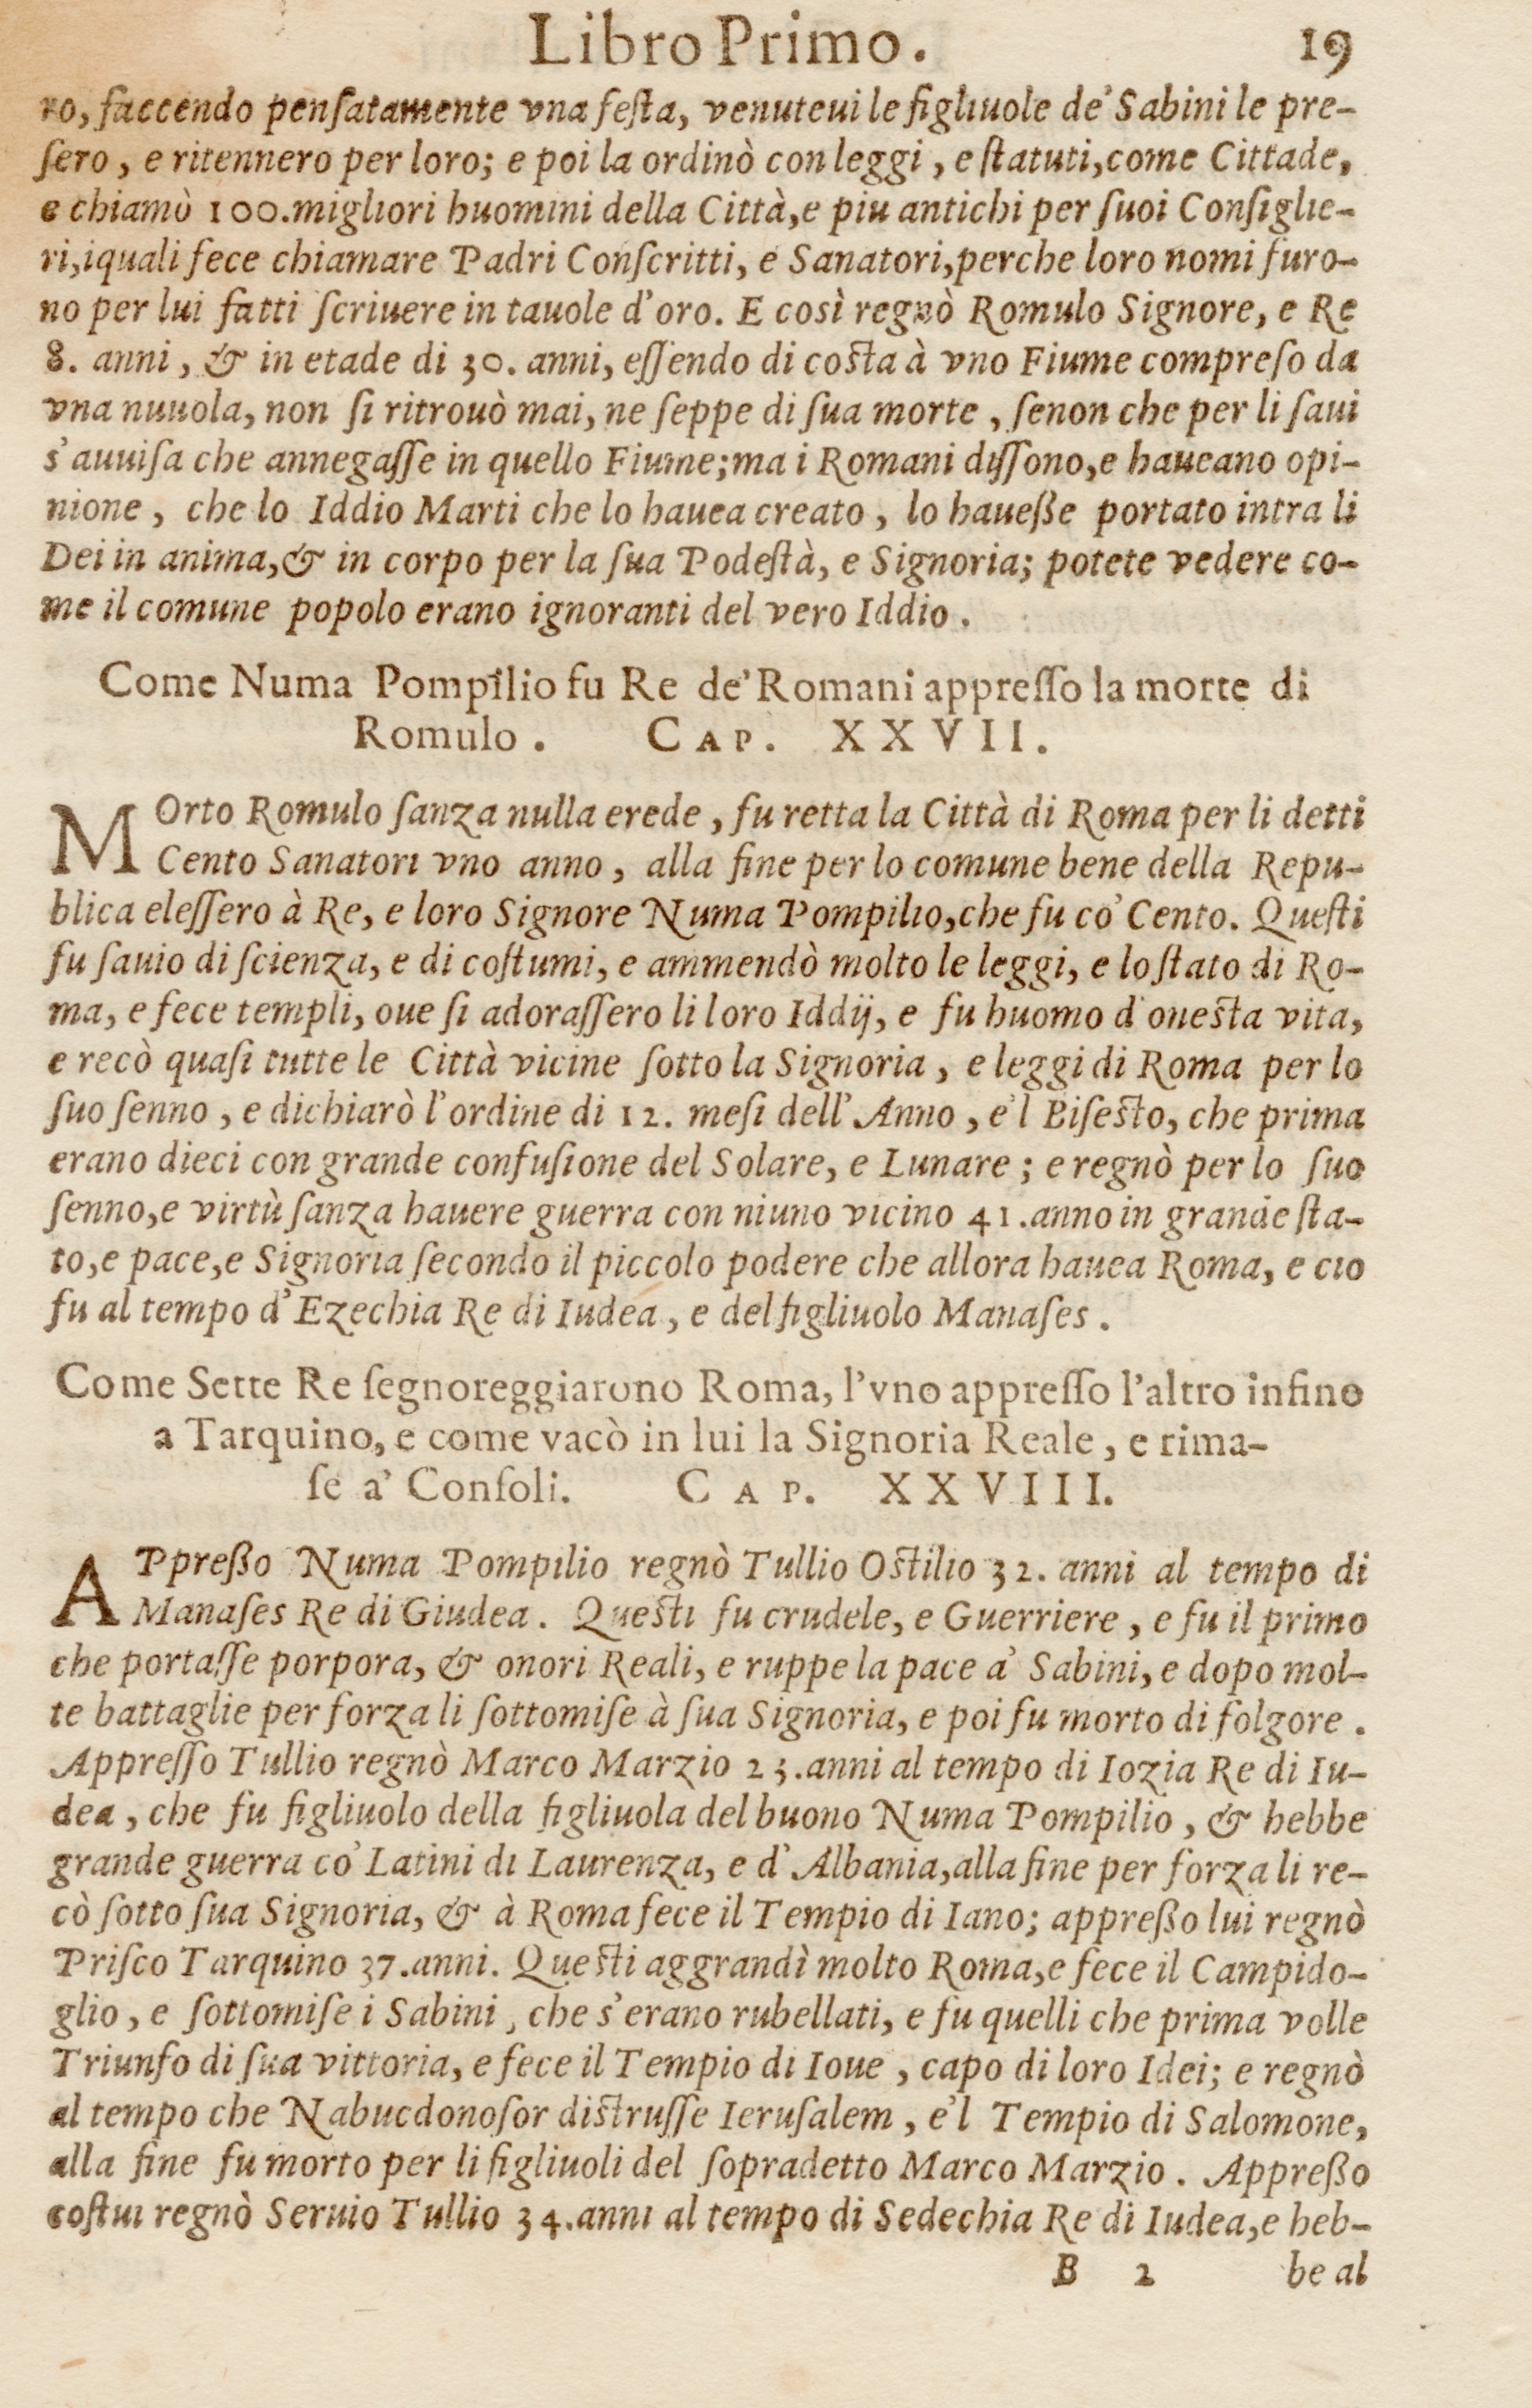 Libro Primo. 19
ro, faccendo penſatamente vna feſta, venuteui le figliuole de' Sabini le pre-
ſero, e ritennero per loro; e poi la ordinò con leggi, e ſtatuti, come Cittade,
e chiamò 100. migliori huomini della Città, e piu antichi per ſuoi Conſiglie-
ri, iquali fece chiamare Padri Conſcritti, e Sanatori, perche loro nomi furo-
no per lui fatti ſcriuere in tauole d'oro. E così regnò Romulo Signore, e Re
8. anni, & in etade di 30. anni, eſſendo di coſta à vno Fiume compreſo da
vna nuuola, non ſi ritrouò mai, ne ſeppe di ſua morte, ſenon che per li ſaui
s'auuiſa che annegaſſe in quello Fiume; ma i Romani diſſono, e haueano opi-
nione, che lo Iddio Marti che lo hauea creato, lo haueße portato intra li
Dei in anima, & in corpo per la ſua Podeſtà, e Signoria; potete vedere co-
me il comune popolo erano ignoranti del vero Iddio.
Come Numa Pompilio fu Re de' Romani appreſſo la morte di
Romulo. CAP. XXVII.
MOrto Romulo ſanza nulla erede, fu retta la Città di Roma per li detti
Cento Sanatori vno anno, alla fine per lo comune bene della Repu-
blica eleſſero à Re, e loro Signore Numa Pompilio, che fu co' Cento. Queſti
fu ſauio di ſcienza, e di coſtumi, e ammendò molto le leggi, e lo ſtato di Ro-
ma, e fece templi, oue ſi adoraſſero li loro Iddij, e fu huomo d'oneſta vita,
e recò quaſi tutte le Città vicine ſotto la Signoria, e leggi di Roma per lo
ſuo ſenno, e dichiarò l'ordine di 12. meſi dell'Anno, e'l Biſeſto, che prima
erano dieci con grande confuſione del Solare, e Lunare; e regnò per lo ſuo
ſenno, e virtù ſanza hauere guerra con niuno vicino 41. anno in grande ſta-
to, e pace, e Signoria ſecondo il piccolo podere che allora hauea Roma, e cio
fu al tempo d'Ezechia Re di Iudea, e del figliuolo Manaſes.
Come Sette Re ſegnoreggiarono Roma, l'vno appreſſo l'altro infino
a Tarquino, e come vacò in lui la Signoria Reale, e rima-
ſe a' Conſoli. CAP. XXVIII.
APpreßo Numa Pompilio regnò Tullio Oſtilio 32. anni al tempo di
Manaſes Re di Giudea. Queſti fu crudele, e Guerriere, e fu il primo
che portaſſe porpora, & onori Reali, e ruppe la pace a' Sabini, e dopo mol-
te battaglie per forza li ſottomiſe à ſua Signoria, e poi fu morto di folgore.
Appreſſo Tullio regnò Marco Marzio 23. anni al tempo di Iozia Re di Iu-
dea, che fu figliuolo della figliuola del buono Numa Pompilio, & hebbe
grande guerra co' Latini di Laurenza, e d'Albania, alla fine per forza li re-
cò ſotto ſua Signoria, & à Roma fece il Tempio di Iano; appreßo lui regnò
Priſco Tarquino 37. anni. Queſti aggrandì molto Roma, e fece il Campido-
glio, e ſottomiſe i Sabini, che s'erano rubellati, e fu quelli che prima volle
Triunfo di ſua vittoria, e fece il Tempio di Ioue, capo di loro Idei; e regnò
al tempo che Nabucdonoſor diſtruſſe Ieruſalem, e'l Tempio di Salomone,
alla fine fu morto per li figliuoli del ſopradetto Marco Marzio. Appreßo
coſtui regnò Seruio Tullio 34. anni al tempo di Sedechia Re di Iudea, e heb-
B 2 be al